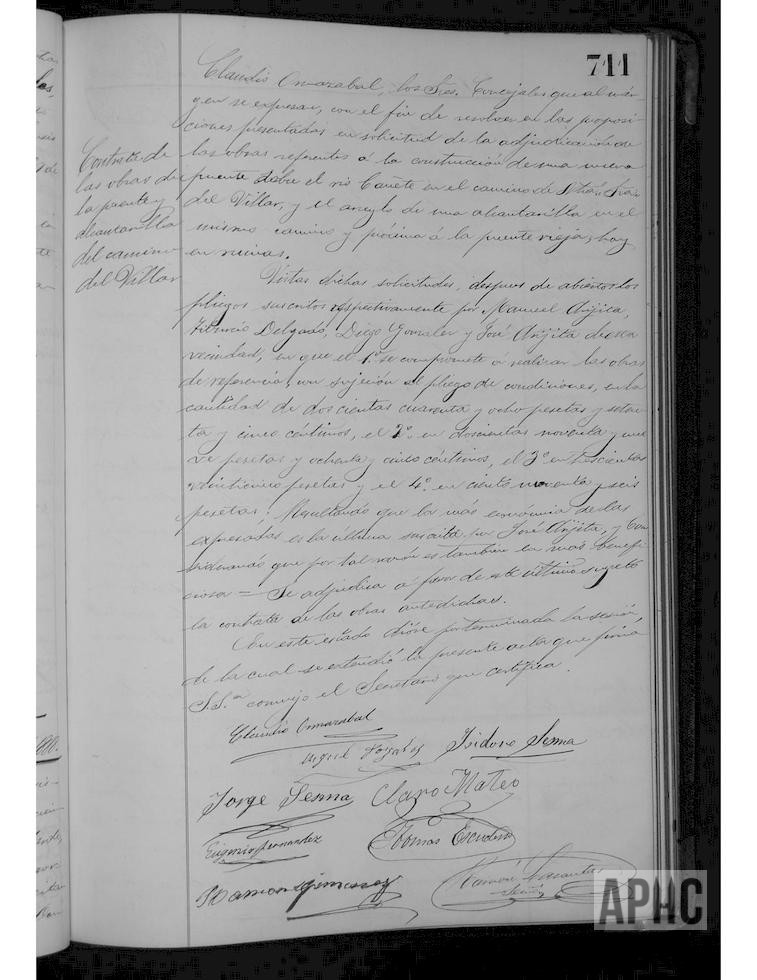 711
Claudio Onmazabal, los Sres. Concejales que al mar-
gen se expresan, con el fin de resolver en las proposi-
ciones presentadas en solicitud de la adjudicación de
las obras referentes á la construcción de una nueva
puente sobre el rio Cañete en el camino de Ntra. Sra.
del Villar, y el arreglo de una alcantarilla en el
mismo camino y próxima á la puente vieja, hoy
en ruinas.
Contrata de
las obras de
la puente y
alcantarilla
del camino
del Villar
Vistas dichas solicitudes, despues de abiertos los
pliegos suscritos respectivamente por Manuel Arijita,
Tiburcio Delgado, Diego Gonzalez y José Arijita de esta
vecindad, en que el 1º se compromete á realizar las obras
de referencia, con sujeción al pliego de condiciones, en la
cantidad de doscientas cuarenta y ocho pesetas y seten-
ta y cinco céntimos, el 2º en doscientas noventa y nue
ve pesetas y ochenta y cinco céntimos, el 3º en trescientas
veinticinco pesetas y el 4º en ciento noventa y seis
pesetas: Resultando que la más económica de las
expresadas es la última suscrita por José Arijita, y Con
siderando que por tal razón es también la más benefi
ciosa = Se adjudica á favor de este último sugeto
la contrata de las obras antedichas.
En este estado dióse por terminada la sesión,
de la cual se extendió la presente acta que firma
S.S.ª conmigo el Secretario que certifica.
Claudio Onmazabal
Miguel Isidoro Sesma
Jorge Sesma Claro Mateo
Eugenio Fernandez Tomas Escudero
Ramon Gimenez Ramón
APHC